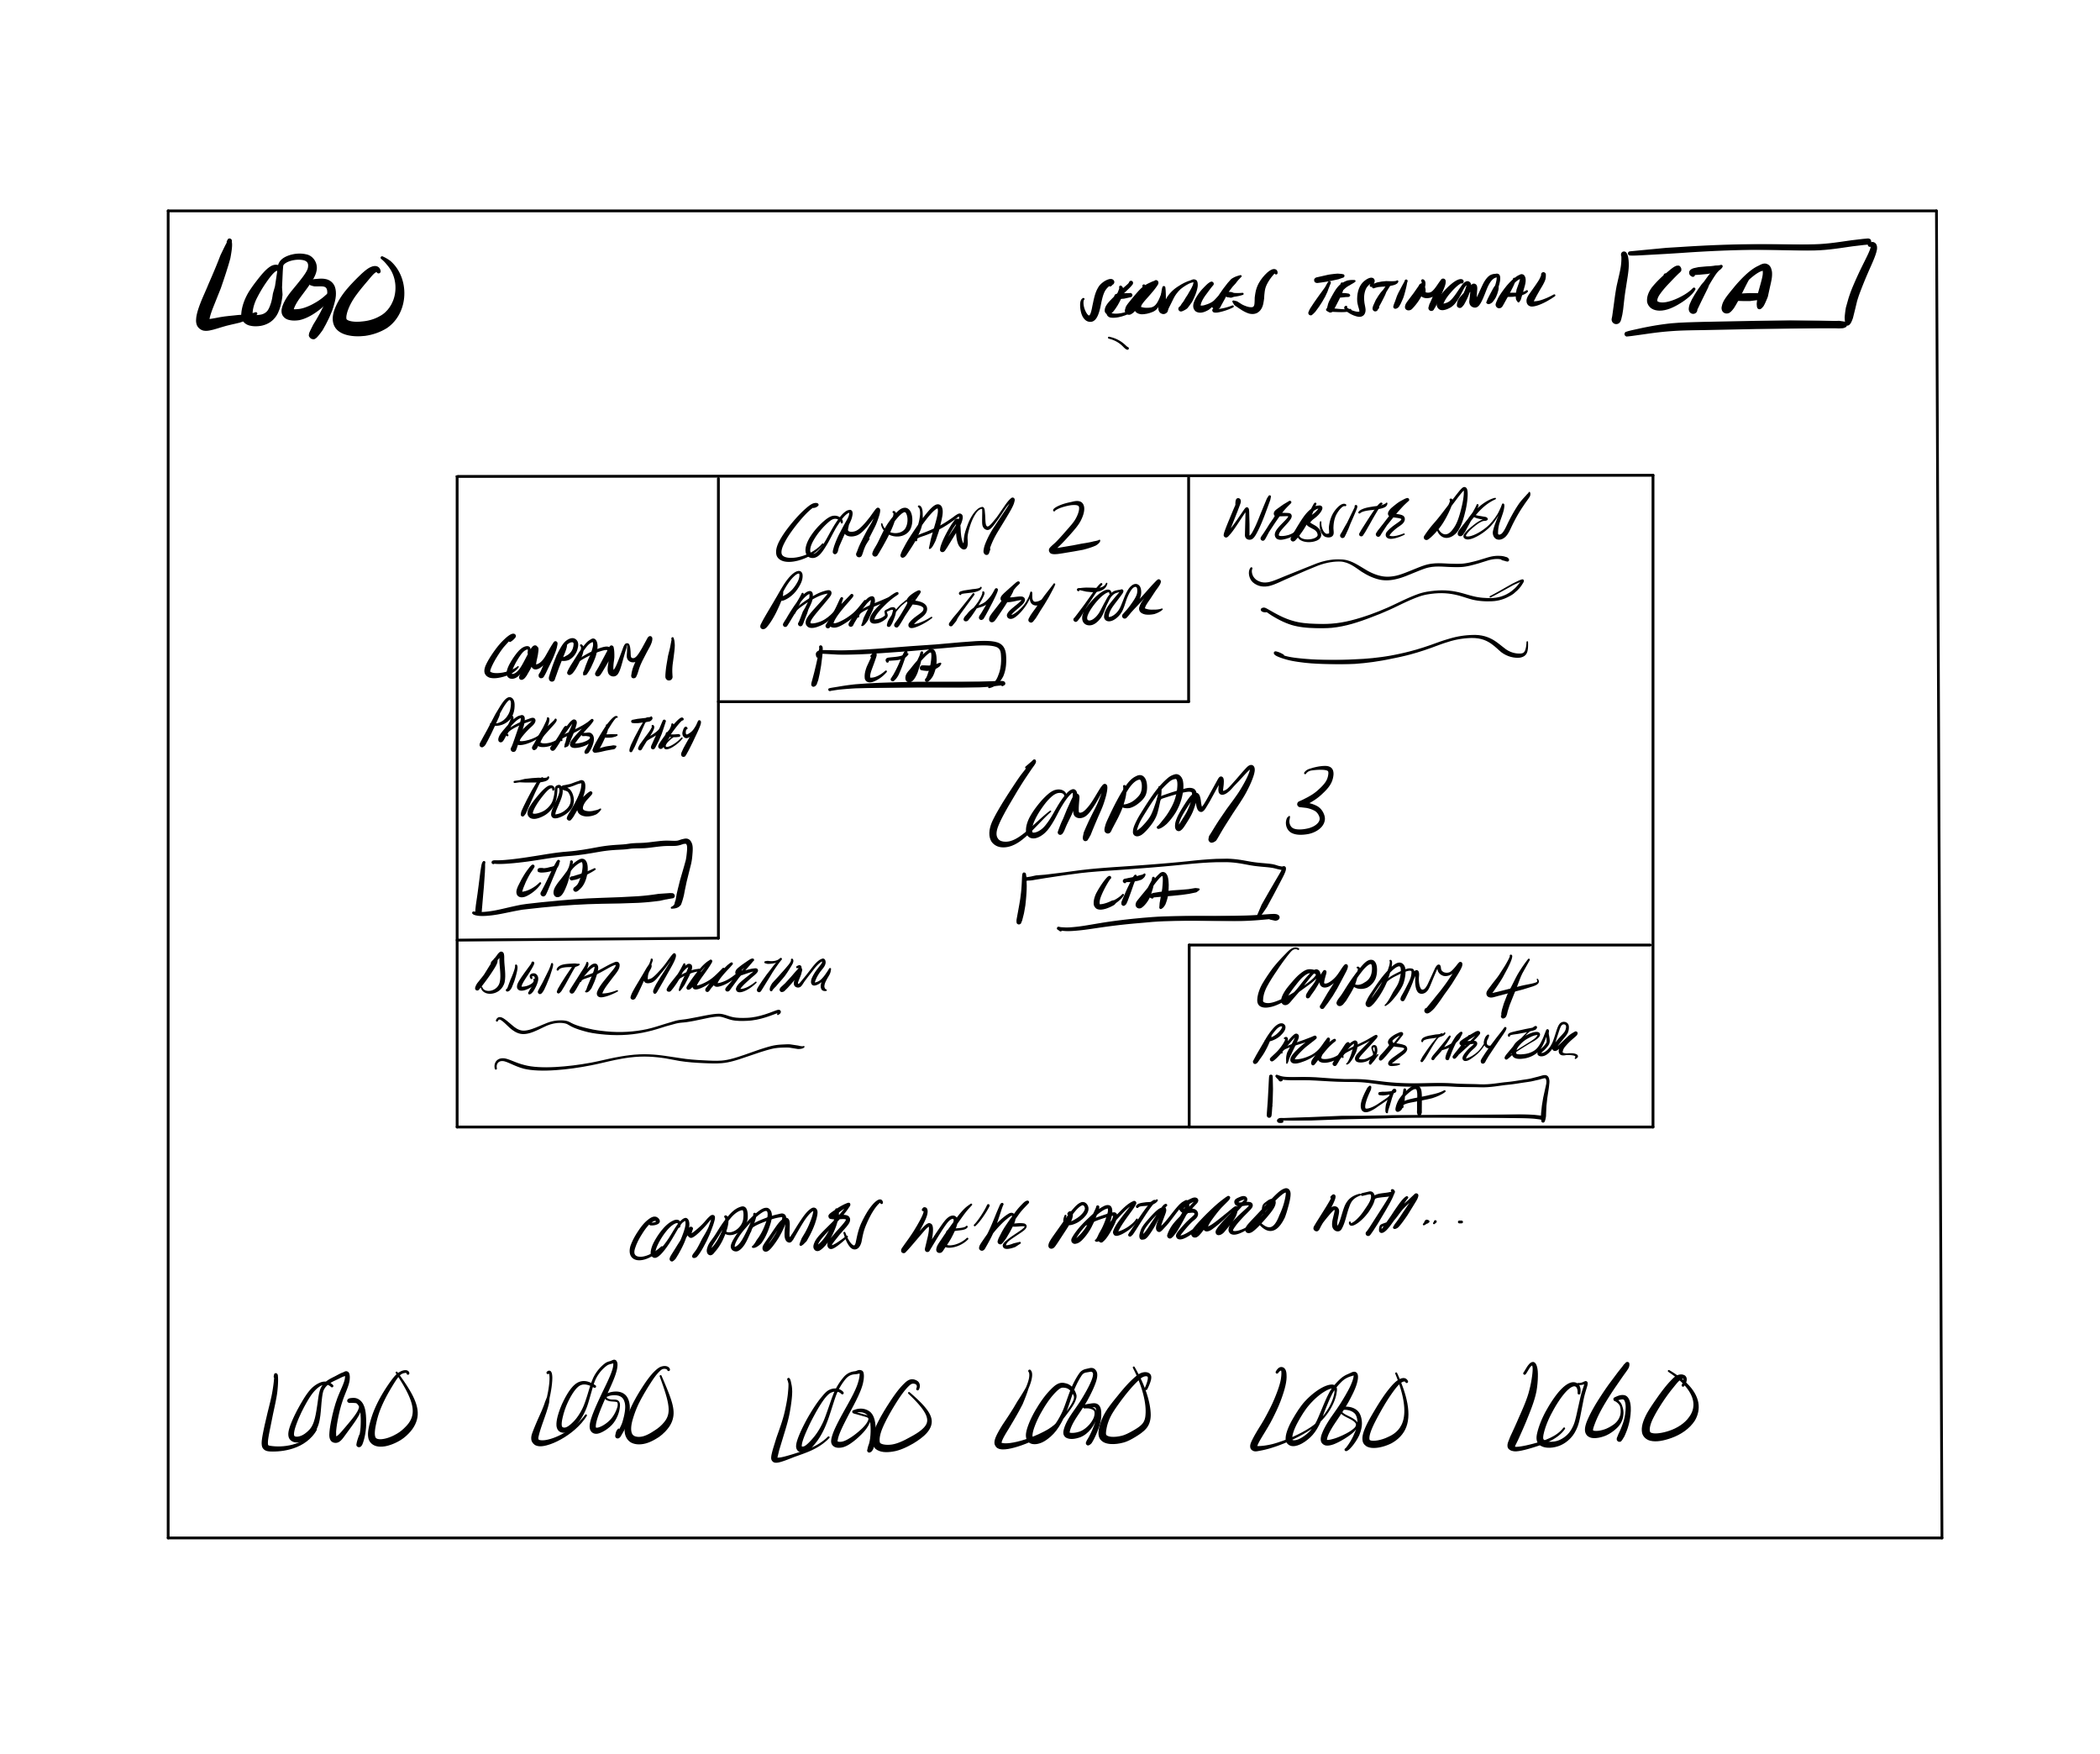 LOGO
SERVICES TESTIMONIALS
CTA
COMPANY 1
PARAGRAPHS THEY
TOOK
CTA
COMPANY 2
PARAGRAPHS THEY TOOK
CTA
WEBSITE DSGN
COMPANY 3
CTA
DIGITAL MARKETING
COMPANY 4
PACKAGES THEY TOOK
CTA
COMPANIES WE'VE PARTNERED WITH...
LOGO LOGO LOGO LOGO LOGO LOGO